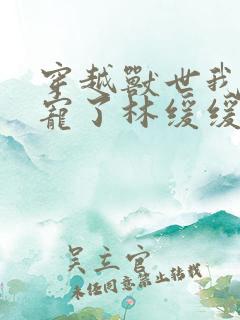 穿越獸世我
寵了林緩緩
吴主官
未经同意禁止转载